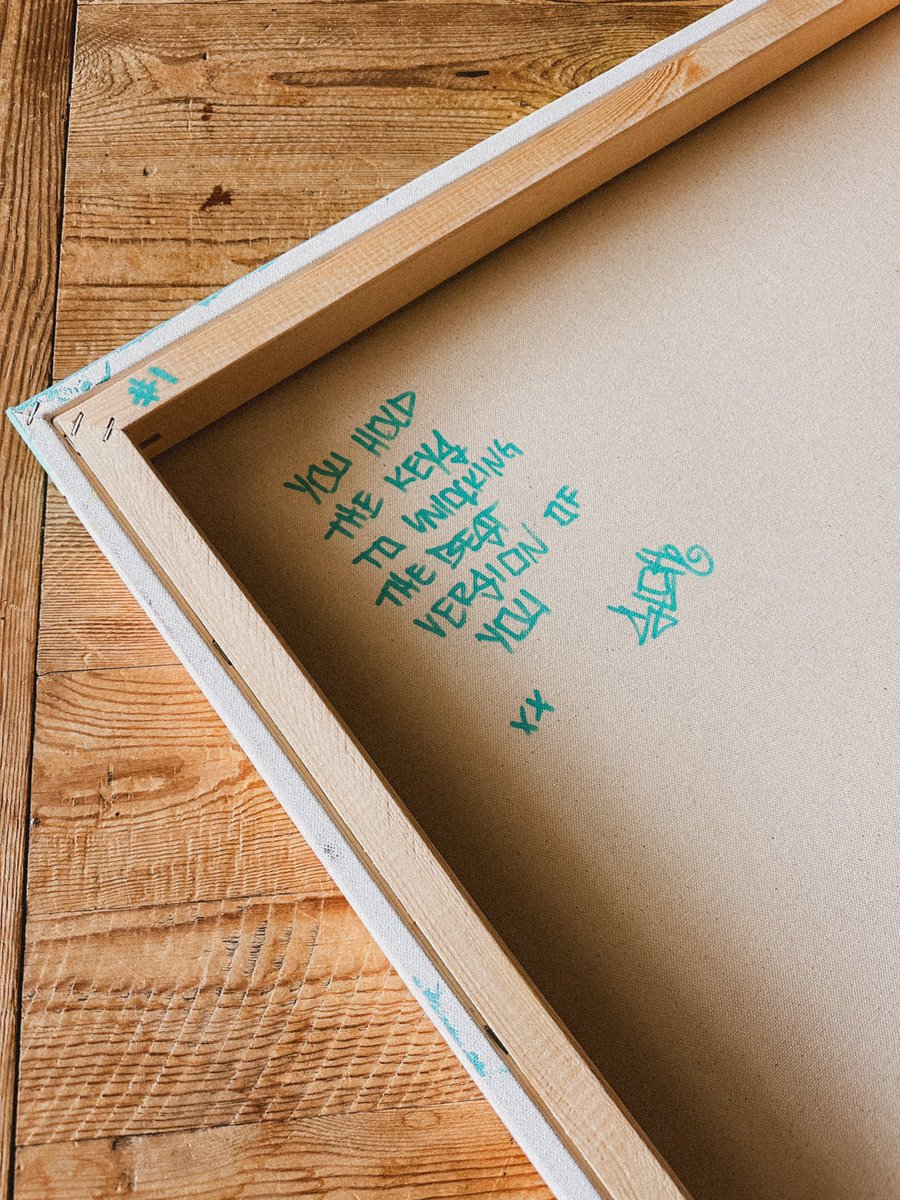 #1
YOU HOLD
THE KEYS
TO UNLOCKING
THE BEST
VERSION OF
YOU
xx